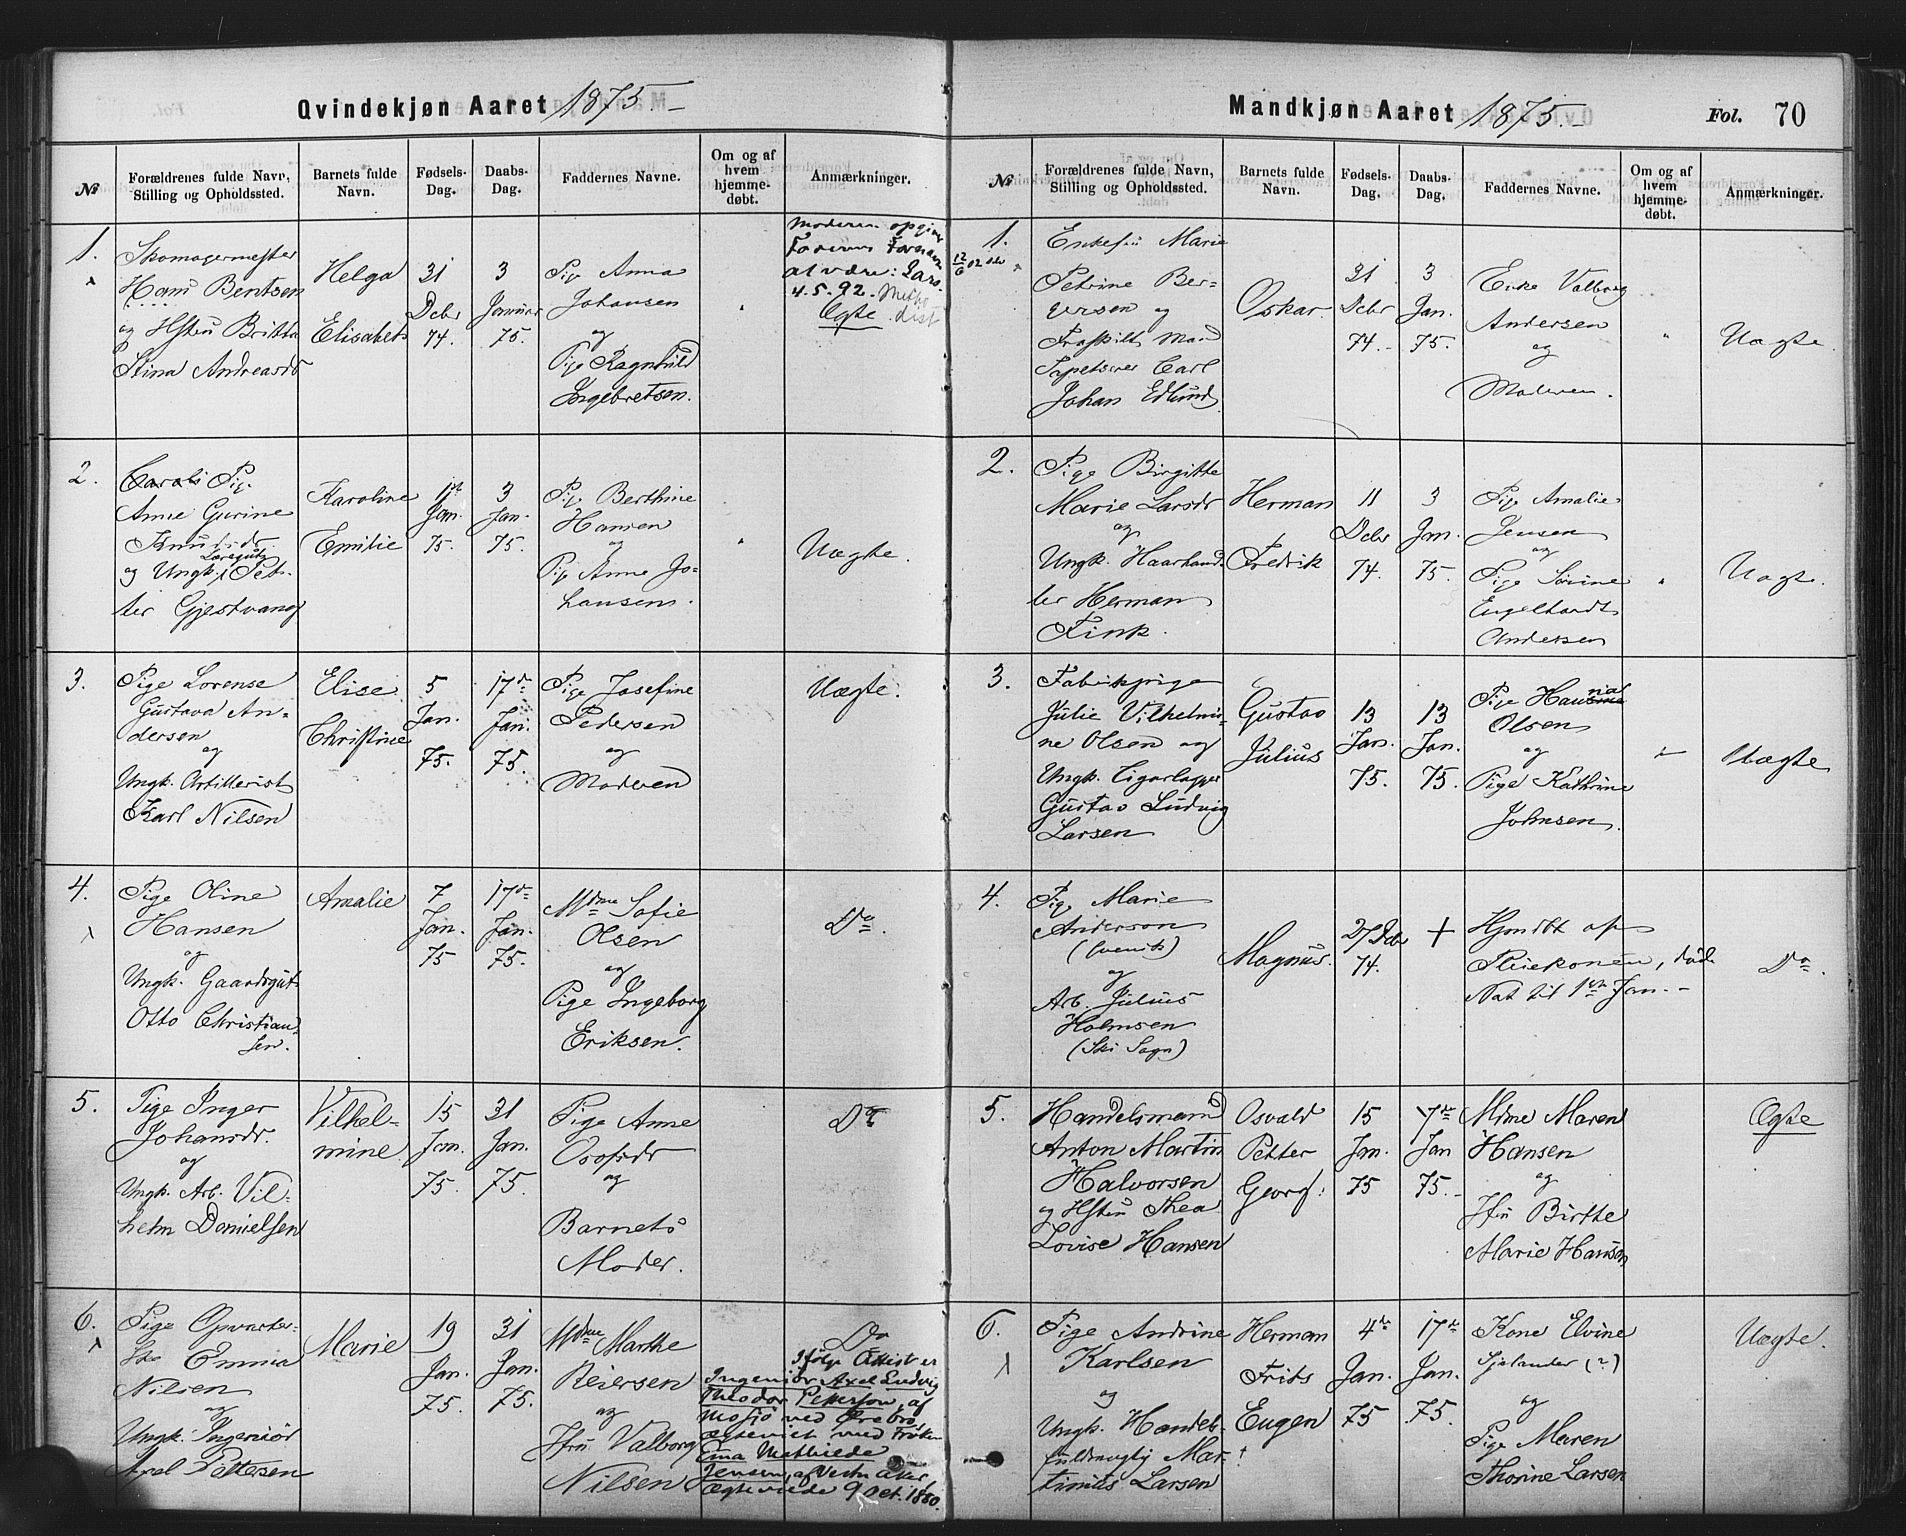 Qvindekjøn Aaret 1875.
№
Forældrenes fulde Navn,
Stilling og Opholdssted.
Barnets fulde
Navn.
Fødsels-
Dag.
Daabs-
Dag.
Faddernes Navne.
Om og af
hvem
hjemme-
døbt.
Anmærkninger.
1.
Skomagermester
Hans Bentsen
og Hstru Britta
Stina Andreasdr
Helga
Elisabeth
31
Debr
74.
3
Januar
75.
Pige Anna
Johansen
og
Pige Ragnhild
Ingebretsen.
Moderen opgiver
Faderens Fornavn
at være: Lars.
4.5.92.
Ægte
2.
Pige
Anne Gurine
Knudsdr.
Læregut
og Ungk. Pet-
ter Gjestvang
Karoline
Emilie
1st
Jan.
75.
3
Jan.
75.
Pige Berthine
Hansen
og
Pige Anne Jo-
hansens.
Uægte.
3.
Pige Lorense
Gustava An-
dersen
og
Ungk. Artillerist
Karl Nilsen
Elise
Christine
5
Jan.
75.
17de
Jan.
75.
Pige Josefine
Pedersen
og
Moderen
Uægte.
4.
Pige Oline
Hansen
og
Ungk. Gaardsgut
Otto Christian-
sen.
Amalie
7
Jan.
75
17de
Jan.
75.
Mdme Sofie
Olsen
og
Pige Ingeborg
Eriksen.
Do.
5.
Pige Inger
Johansdr.
og
Ungk. Arb. Vil-
helm Danielsen
Vilhel-
mine.
15
Jan.
75.
31
Jan.
75.
Pige Anne
og
Barnets
Moder.
Do
6.
Pige
Emma
Nilsen
og
Ungk. Ingeniør
Axel Pettersen
Marie
19
Jan.
75.
31
Jan.
75.
Mdme Marthe
Reiersen
og
Jfru Valborg
Nilsen
Do
Ifølge Attist er
Ingeniör Axel Ludvig
Theodor Petterson, af
Mosjö ved Örebro,
ægteviet med Frøken
Ema Mathilde
Jensen, af Vestre Aker
Ægteviede 9 Oct. 1880.
Mandkjøn Aaret 1875.
Fol. 70
№
Forældrenes fulde Navn,
Stilling og Opholdssted.
Barnets fulde
Navn.
Fødsels-
Dag.
Daabs-
Dag.
Faddernes Navne.
Om og af
hvem
hjemme-
døbt.
Anmærkninger.
1.
Enkefru Marie
Petrine Ber-
versen og
Fraskilt Mand
Tapetserer Carl
Johan Edlund
Oskar.
31
Debr
74.
3
Jan.
75.
Enke Valborg
Andersen
og
Moderen.
Uægte.
2.
Pige Birgitte
Marie Larsdr
og
Ungk. Haarhand-
ler Herman
Fink.
Herman
Fredrik
11
Debr
74.
3
Jan.
75.
Pige Amalie
Jensen
og
Pige Sørine
Engelhardt
Andersen
Uægte.
3.
Fabrikpige
Julie Vilhelmi-
ne Olsen og
Ungk. Cigarlagger
Gustav Ludvig
Larsen
Gustav
Julius
13
Jan.
75.
13
Jan.
75.
Pige
Olsen
og
Pige Kathrine
Johnsen.
Uægte
4.
Pige Marie
Anderson
(svensk)
og
Arb. Julius
Holmsen
(Ski Sogn)
Magnus.
27 Debr
74.
+
Hjemdbt af
Pleiekonen, døde
Nat til 1ste Jan.
Do.
5.
Handelsmand
Anton Martin
Halvorsen
og Hstru Thea
Lovise Hansen
Osvald
Petter
Georg.
15
Jan.
75
7de
Jan
75.
Mdme Maren
Hansen
og
Jfru Birthe
Marie Hansen
Ægte
6.
Pige Andrine
Karlsen
og
Ungk. Handels-
fuldmægtig Mar-
tinius Larsen
Herman
Frits
Eugen
4de
Jan.
75
17de
Jan.
75.
Kone Elvine
Sjølander (?)
og
Pige Maren
Thorine Larsen
Uægte.